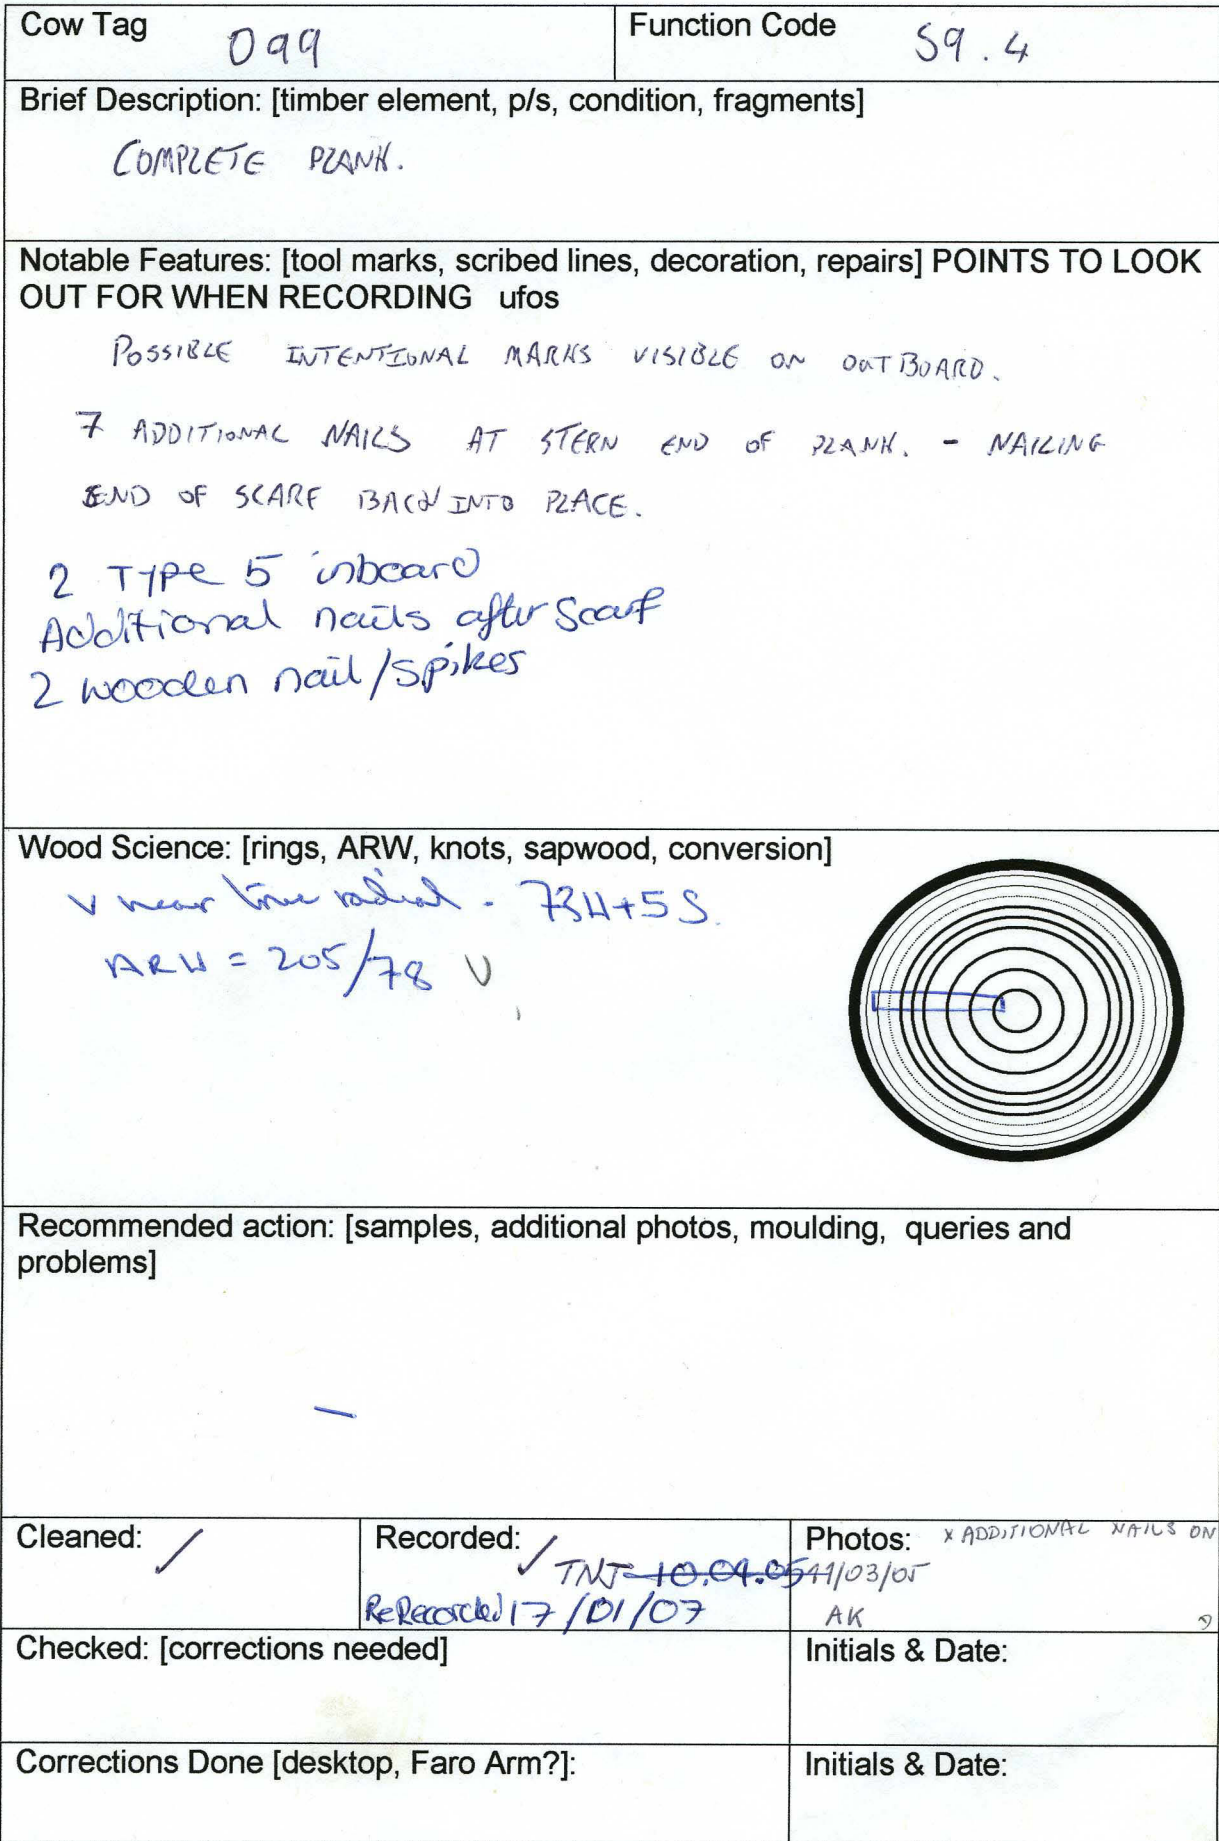 Cow Tag 099 Function Code S9.4
Brief Description: [timber element, p/s, condition, fragments]
COMPLETE PLANK.
Notable Features: [tool marks, scribed lines, decoration, repairs] POINTS TO LOOK
OUT FOR WHEN RECORDING ufos
POSSIBLE INTENTIONAL MARKS VISIBLE ON OUTBOARD.
7 ADDITIONAL NAILS AT STERN END OF PLANK. - NAILING
END OF SCARF BACK INTO PLACE.
2 Type 5 inboard
Additional nails after scarf
2 wooden nail/spikes
Wood Science: [rings, ARW, knots, sapwood, conversion]
V near true radial - 73H+5S.
ARW = 205/78 V
Recommended action: [samples, additional photos, moulding, queries and
problems]
—
Cleaned: ✓ Recorded: ✓ Photos: x ADDITIONAL NAILS ON
TNJ 10.09.05 11/03/05
ReRecorded 17/01/07 AK
Checked: [corrections needed] Initials & Date:
Corrections Done [desktop, Faro Arm?]: Initials & Date: